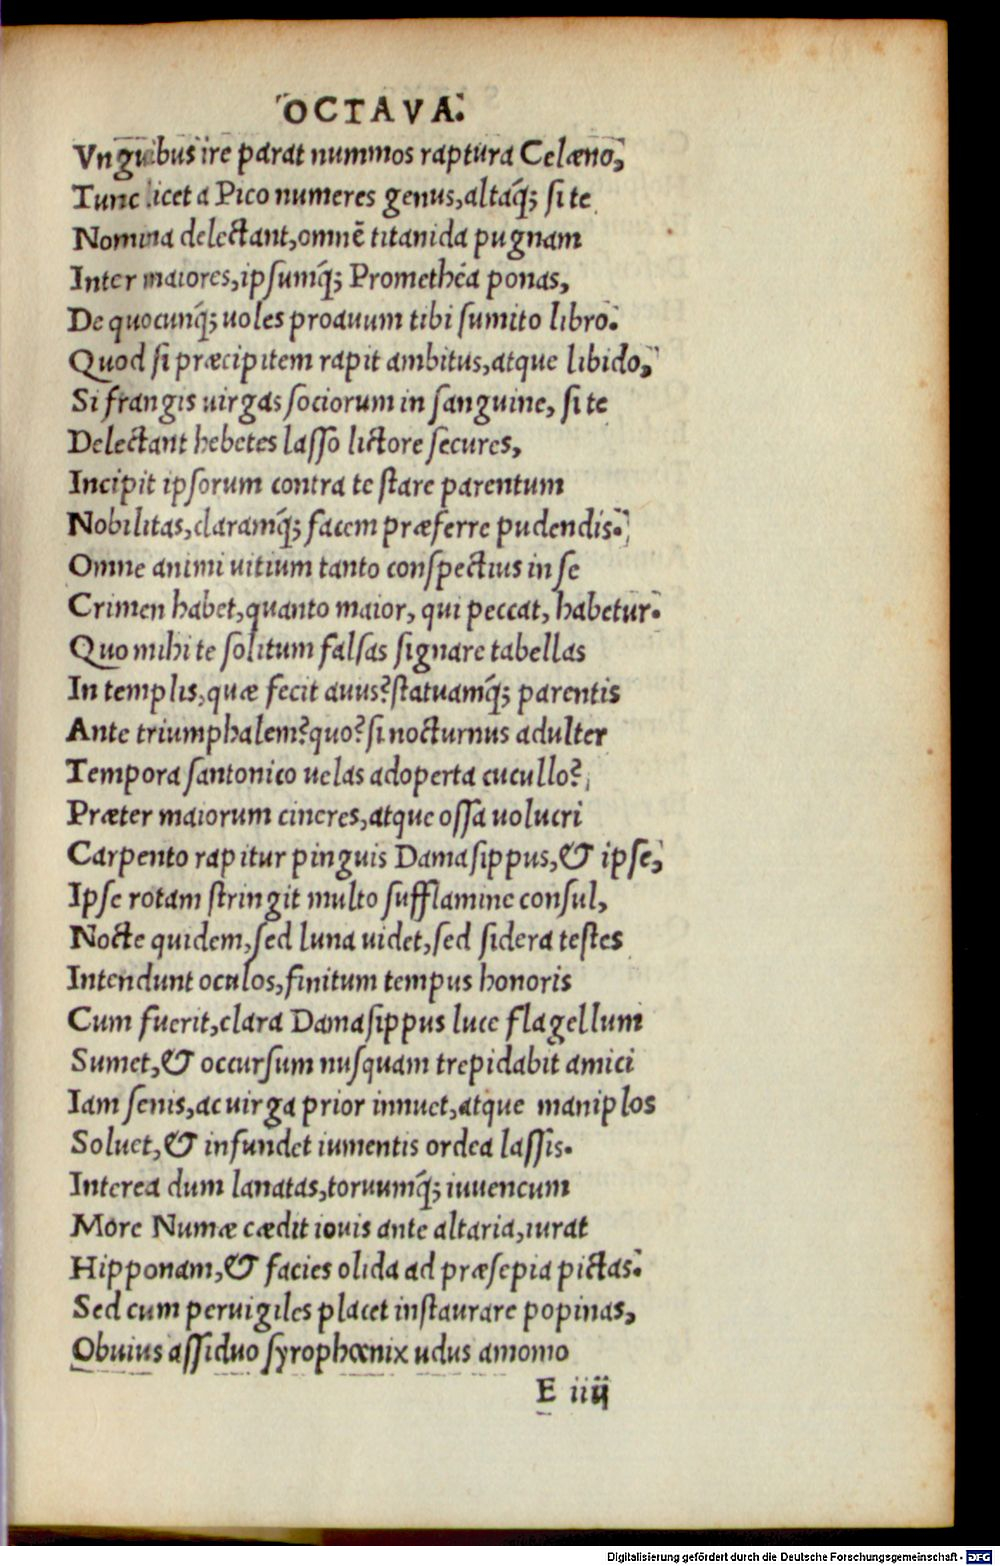 OCTAVA.
Vnguibus ire parat nummos raptura Celæno,
Tunc licet a Pico numeres genus, altaq́; si te
Nomina delectant, omnẽ titanida pugnam
Inter maiores, ipsumq́; Promethéa ponas,
De quocunq́; uoles proauum tibi sumito libro.
Quod si præcipitem rapit ambitus, atque libido,
Si frangis uirgas sociorum in sanguine, si te
Delectant hebetes lasso lictore secures,
Incipit ipsorum contra te stare parentum
Nobilitas, claramq́; facem præferre pudendis.
Omne animi uitium tanto conspectius in se
Crimen habet, quanto maior, qui peccat, habetur.
Quo mihi te solitum falsas signare tabellas
In templis, quæ fecit auus? statuamq́; parentis
Ante triumphalem? quo? si nocturnus adulter
Tempora santonico uelas adoperta cucullo?
Præter maiorum cineres, atque ossa uolucri
Carpento rapitur pinguis Damasippus, & ipse,
Ipse rotam stringit multo sufflamine consul,
Nocte quidem, sed luna uidet, sed sidera testes
Intendunt oculos, finitum tempus honoris
Cum fuerit, clara Damasippus luce flagellum
Sumet, & occursum nusquam trepidabit amici
Iam senis, ac uirga prior innuet, atque maniplos
Soluet, & infundet iumentis ordea lassis.
Interea dum lanatas, toruumq́; iuuencum
More Numæ cædit iouis ante altaria, iurat
Hipponam, & facies olida ad præsepia pictas.
Sed cum peruigiles placet instaurare popinas,
Obuius assiduo syrophœnix udus amomo
E iiij
Digitalisierung gefördert durch die Deutsche Forschungsgemeinschaft - DFG